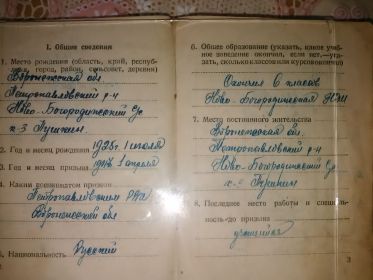 I. Общие сведения
1. Место рождения (область, край, республика, город, район, сельсовет, деревня)
Воронежская обл.
Петропавловский р-н
Ново-Богородицкий с/с
х-з Пушкин
2. Год и месяц рождения 1925г. 1 апреля
3. Год и месяц призыва 1 апреля
4. Каким военкоматом призван
Петропавловским РВК
Воронежской обл
5. Национальность Русский
6. Общее образование (указать, какое учебное заведение окончил, если нет,—указать, сколько классов или курсов окончил)
Окончил 6 классов
Ново-Богородицкая НСШ
7. Место постоянного жительства
Воронежская обл.
Петропавловский р-н
Ново-Богородицкий с/с
Пушкин
8. Последнее место работы и специальность до призыва
учащийся
3